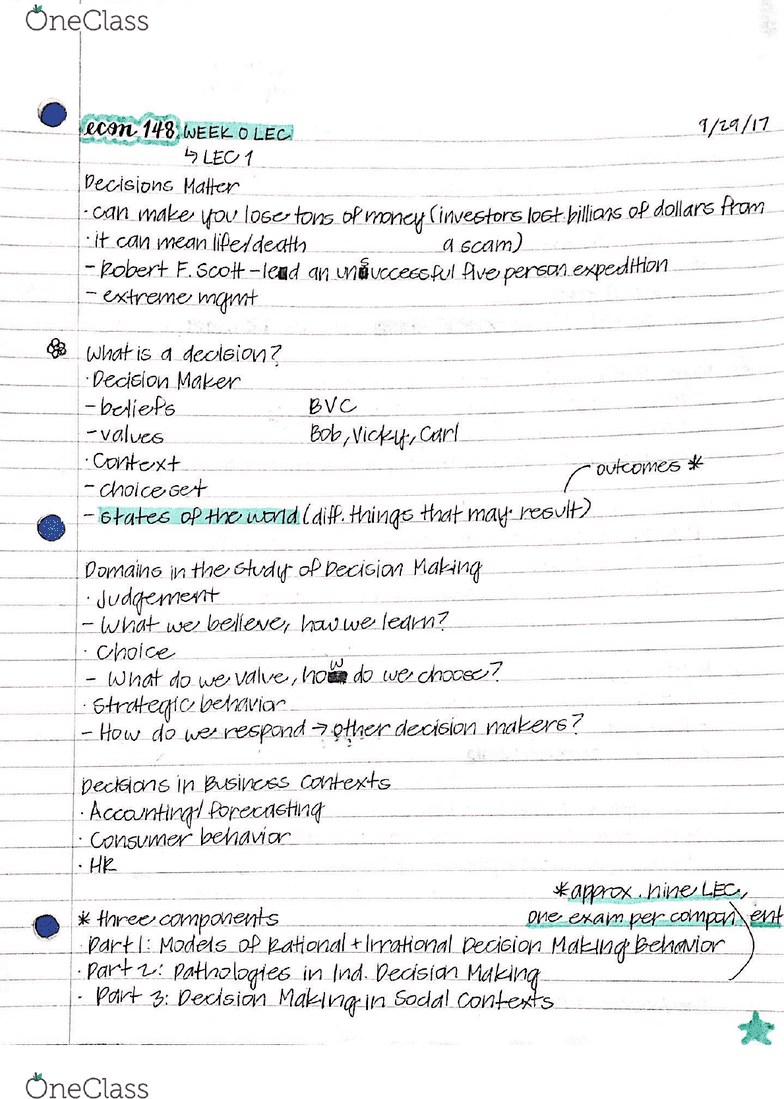 OneClass
econ 148 WEEK 0 LEC 9/29/17
↳ LEC 1
Decisions Matter
· can make you lose tons of money (investors lost billions of dollars from
· it can mean life/death a scam)
- Robert F. Scott - lead an unsuccessful five person expedition
- extreme mgmt
What is a decision?
· Decision Maker
- beliefs BVC
- values Bob, Vicky, Carl
· Context
outcomes *
- choice set
- states of the world (diff. things that may result)
Domains in the study of Decision Making
· Judgement
- What we believe, how we learn?
· Choice
- What do we value, how do we choose?
· Strategic behavior
- How do we respond → other decision makers?
Decisions in Business Contexts
· Accounting/forecasting
· Consumer behavior
· HR
* approx. nine LEC,
* three components one exam per component
· Part 1: Models of Rational + Irrational Decision Making Behavior
· Part 2: Pathologies in Ind. Decision Making
· Part 3: Decision Making in Social Contexts
OneClass